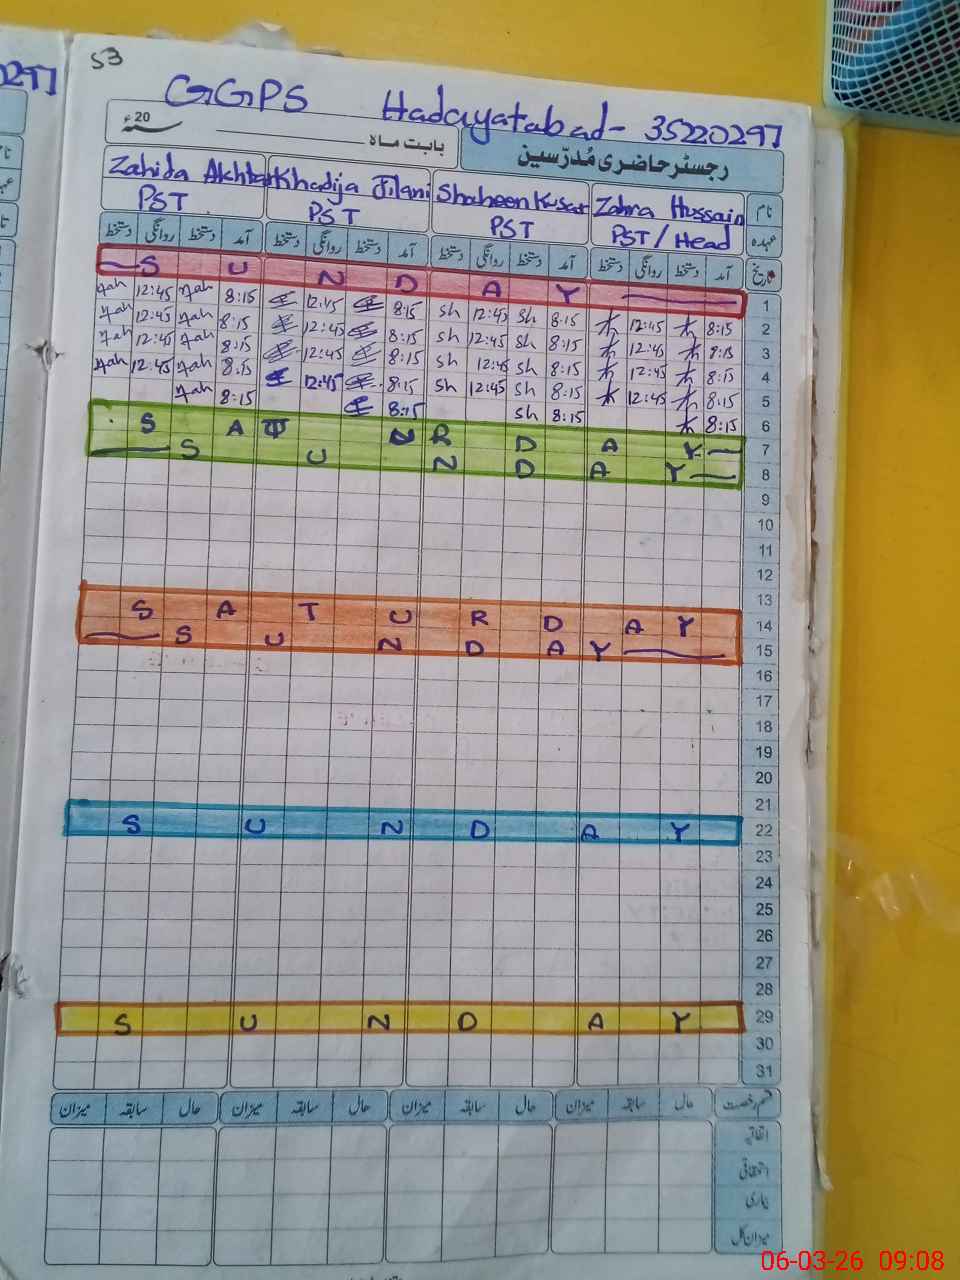 53
GGPS Hadayatabad- 35220297
20ء
بابت ماہ
رجسٹر حاضری مُدرّسین
Zahida Akhtar Khadija Jilani Shaheen Kusar Zahra Hussain نام
PST PST PST PST / Head عہدہ
دستخط روانگی دستخط آمد دستخط روانگی دستخط آمد دستخط روانگی دستخط آمد دستخط روانگی دستخط آمد تاریخ
S U N D A Y 1
12:45 8:15 12:45 8:15 sh 12:45 sh 8:15 12:45 8:15 2
12:45 8:15 12:45 8:15 sh 12:45 sh 8:15 12:45 8:15 3
12:45 8:15 12:45 8:15 sh 12:45 sh 8:15 12:45 8:15 4
12:45 8:15 12:45 8:15 sh 12:45 sh 8:15 12:45 8:15 5
8:15 8:15 sh 8:15 8:15 6
S A T U R D A Y 7
S U N D A Y 8
9
10
11
12
13
S A T U R D A Y 14
S U N D A Y 15
16
17
18
19
20
21
S U N D A Y 22
23
24
25
26
27
28
S U N D A Y 29
30
31
میزان سابقہ حال میزان سابقہ حال میزان سابقہ حال میزان سابقہ حال قسم رخصت
اتفاقیہ
استحقاقی
بیماری
میزان کل
06-03-26 09:08